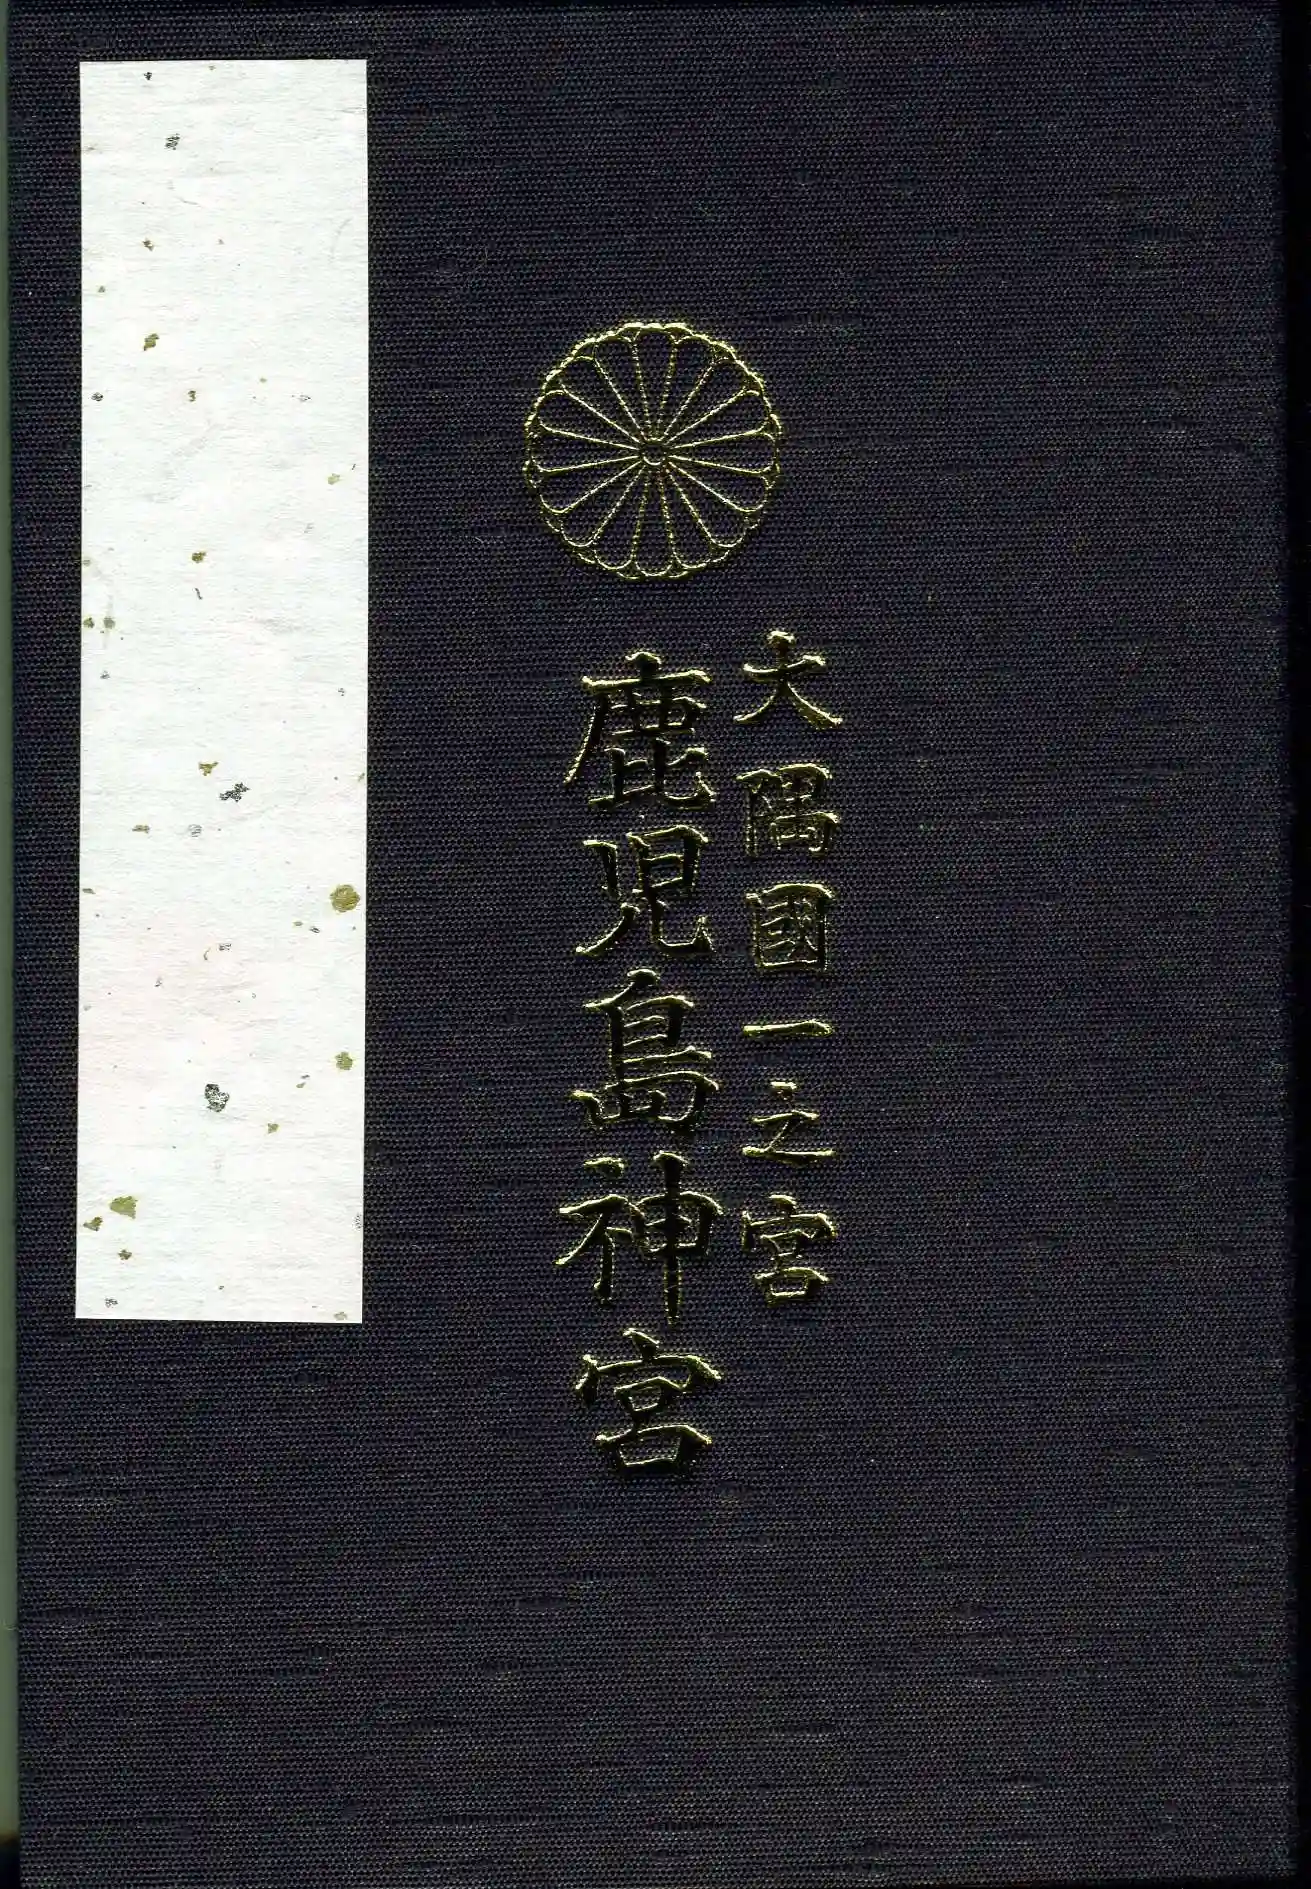 大隅國一之宮
鹿児島神宮